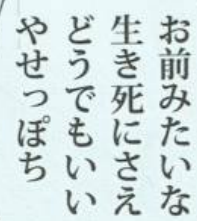 お前みたいな
生き死にさえ
どうでもいい
やせっぽち